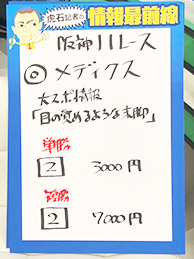 虎石記者の
情報最前線
阪神11レース
◎メディクス
大スポ情報
「目の覚めるような末脚」
単勝
2 3000円
複勝
2 7000円